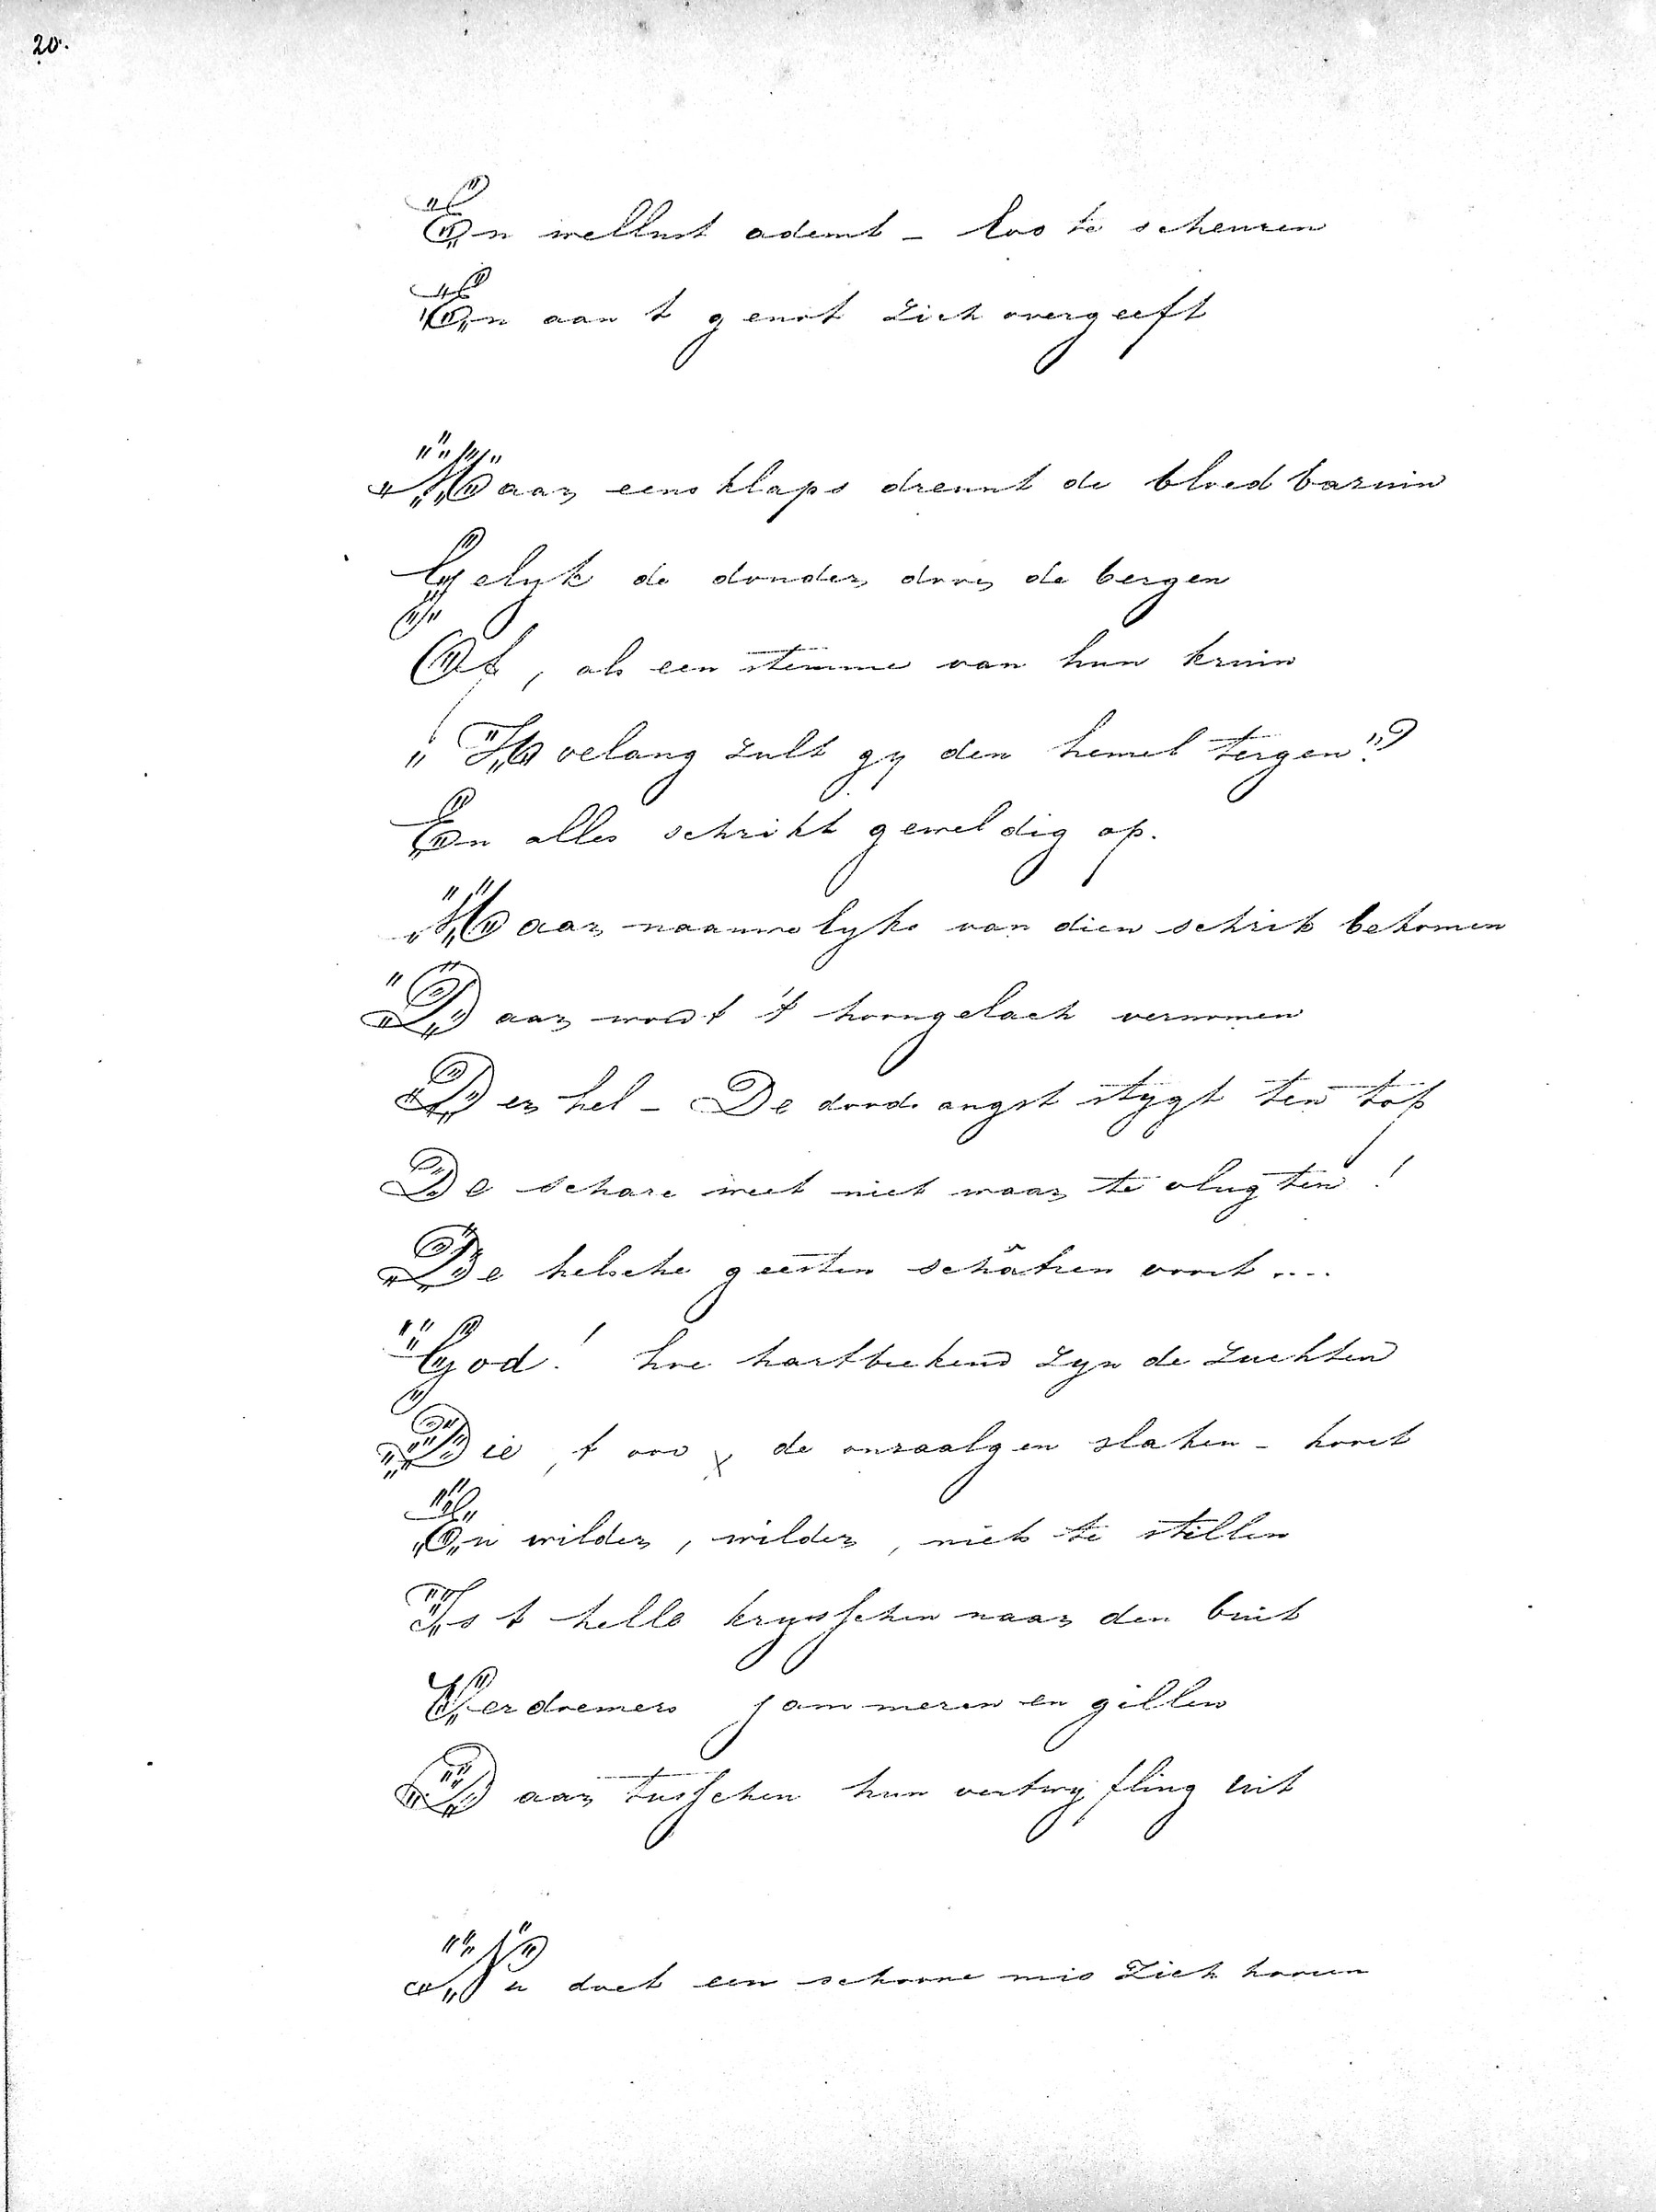 20.
En wellust ademt - los te scheuren
En aan t genot zich overgeeft
Maar eensklaps dreunt de bloedbazuin
Gelyk de donder, door de bergen
Of, als een stemme van hun kruin
"Hoelang zult gy den hemel tergen"?
En alles schrikt geweldig op.
Maar naauwelyks van dien schrik bekomen
Daar wordt 't hoongelach vernomen
Der hel - De doodsangst stygt ten top
De schare weet niet waar te vlugten!
De helsche geesten schatren voort....
God! hoe hartbrekend zyn de zuchten
Die, t oor x de onzaalgen slaken - hoort
En wilder, wilder, niet te stillen
Is t helle krysschen naar den buit
Verdoemers jammeren en gillen
Daar tusschen hun vertwyfling uit
Nu doet een schoone mis zich hooren